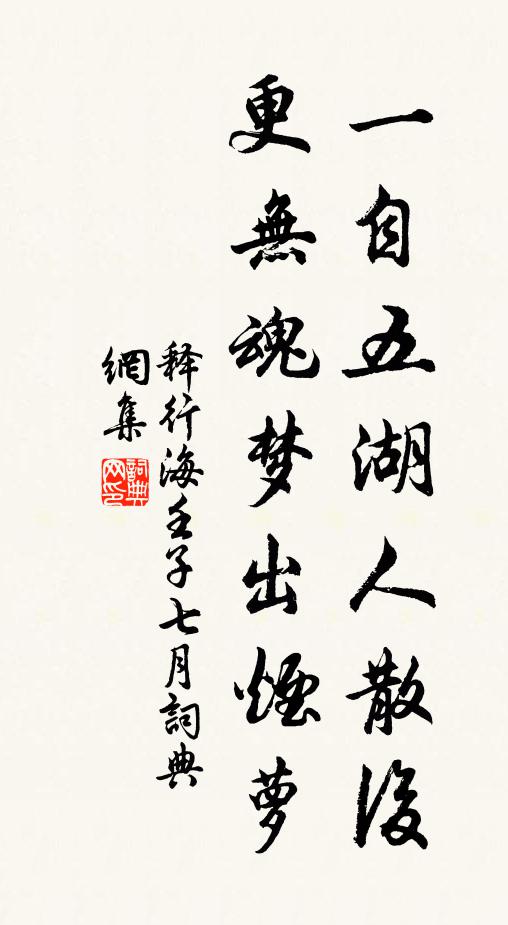 一自五湖人散後
更無魂梦出煙萝
释行海壬子七月詞典
網集
詞典
网印